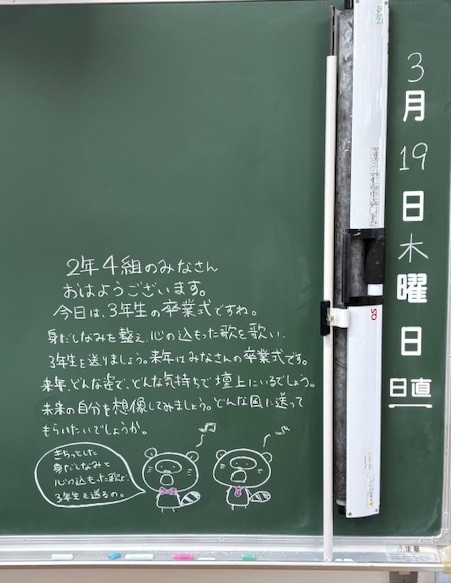 2年4組のみなさん
おはようございます。
今日は、3年生の卒業式ですね。
身だしなみを整え、心の込もった歌を歌い、
3年生を送りましょう。来年はみなさんの卒業式です。
来年、どんな姿で、どんな気持ちで壇上にいるでしょう。
未来の自分を想像してみましょう。どんな風に送って
もらいたいでしょうか。
きちっとした
身だしなみと
心の込もった歌で、
3年生を送るの。
3
月
19
日
木
曜
日
日直